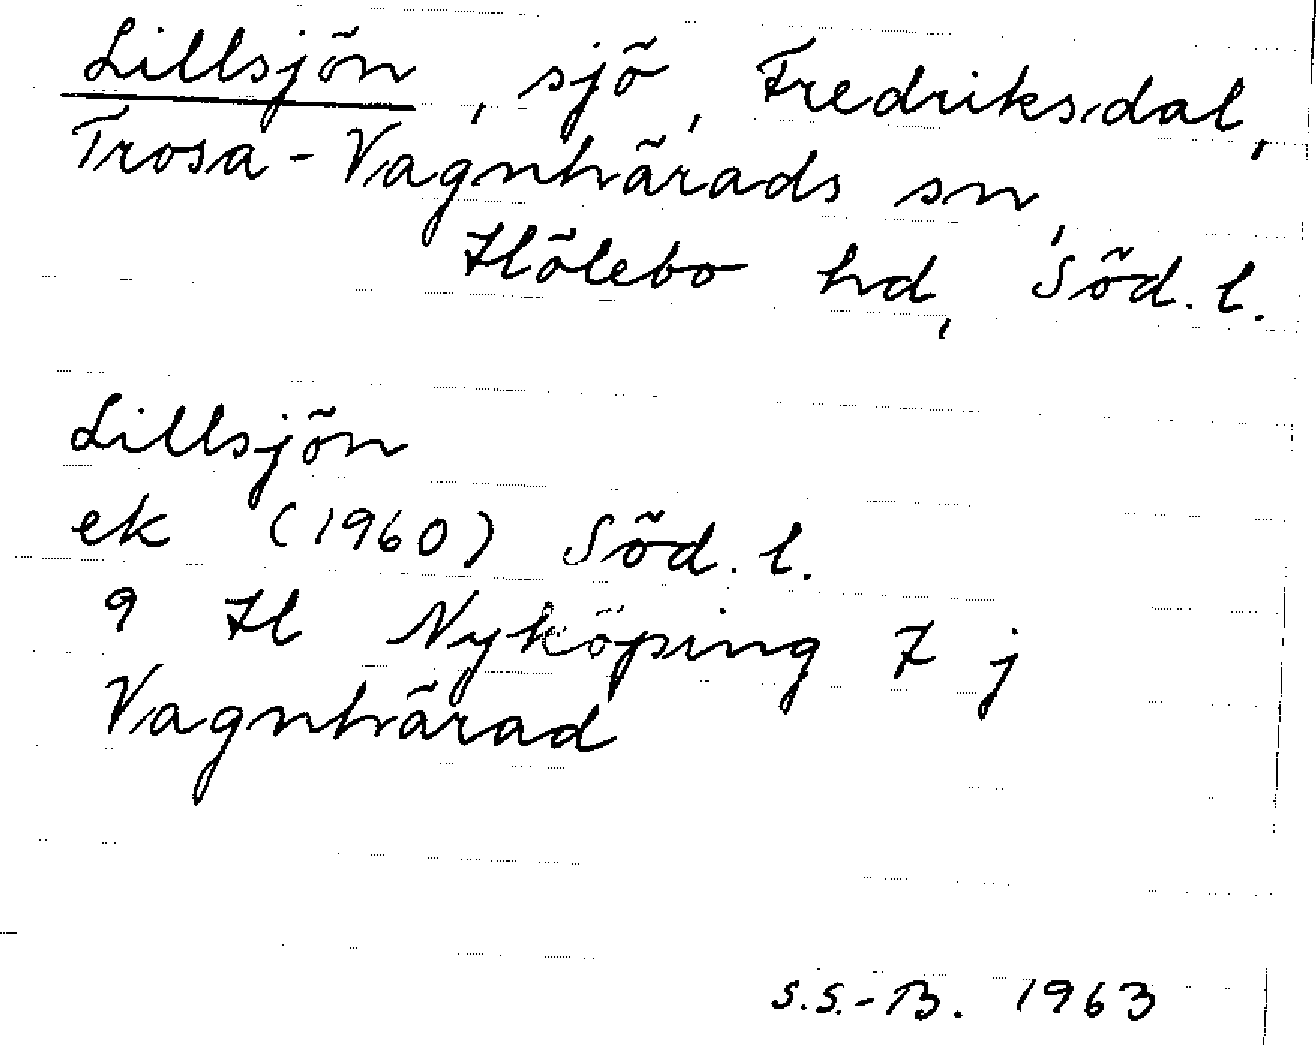 Lillsjön, sjö, Fredriksdal,
Trosa-Vagnhärads sn,
Hölebo hd, Söd. l.
Lillsjön
ek (1960) Söd. l.
9 H Nyköping 7 j
Vagnhärad
S.S.-B. 1963